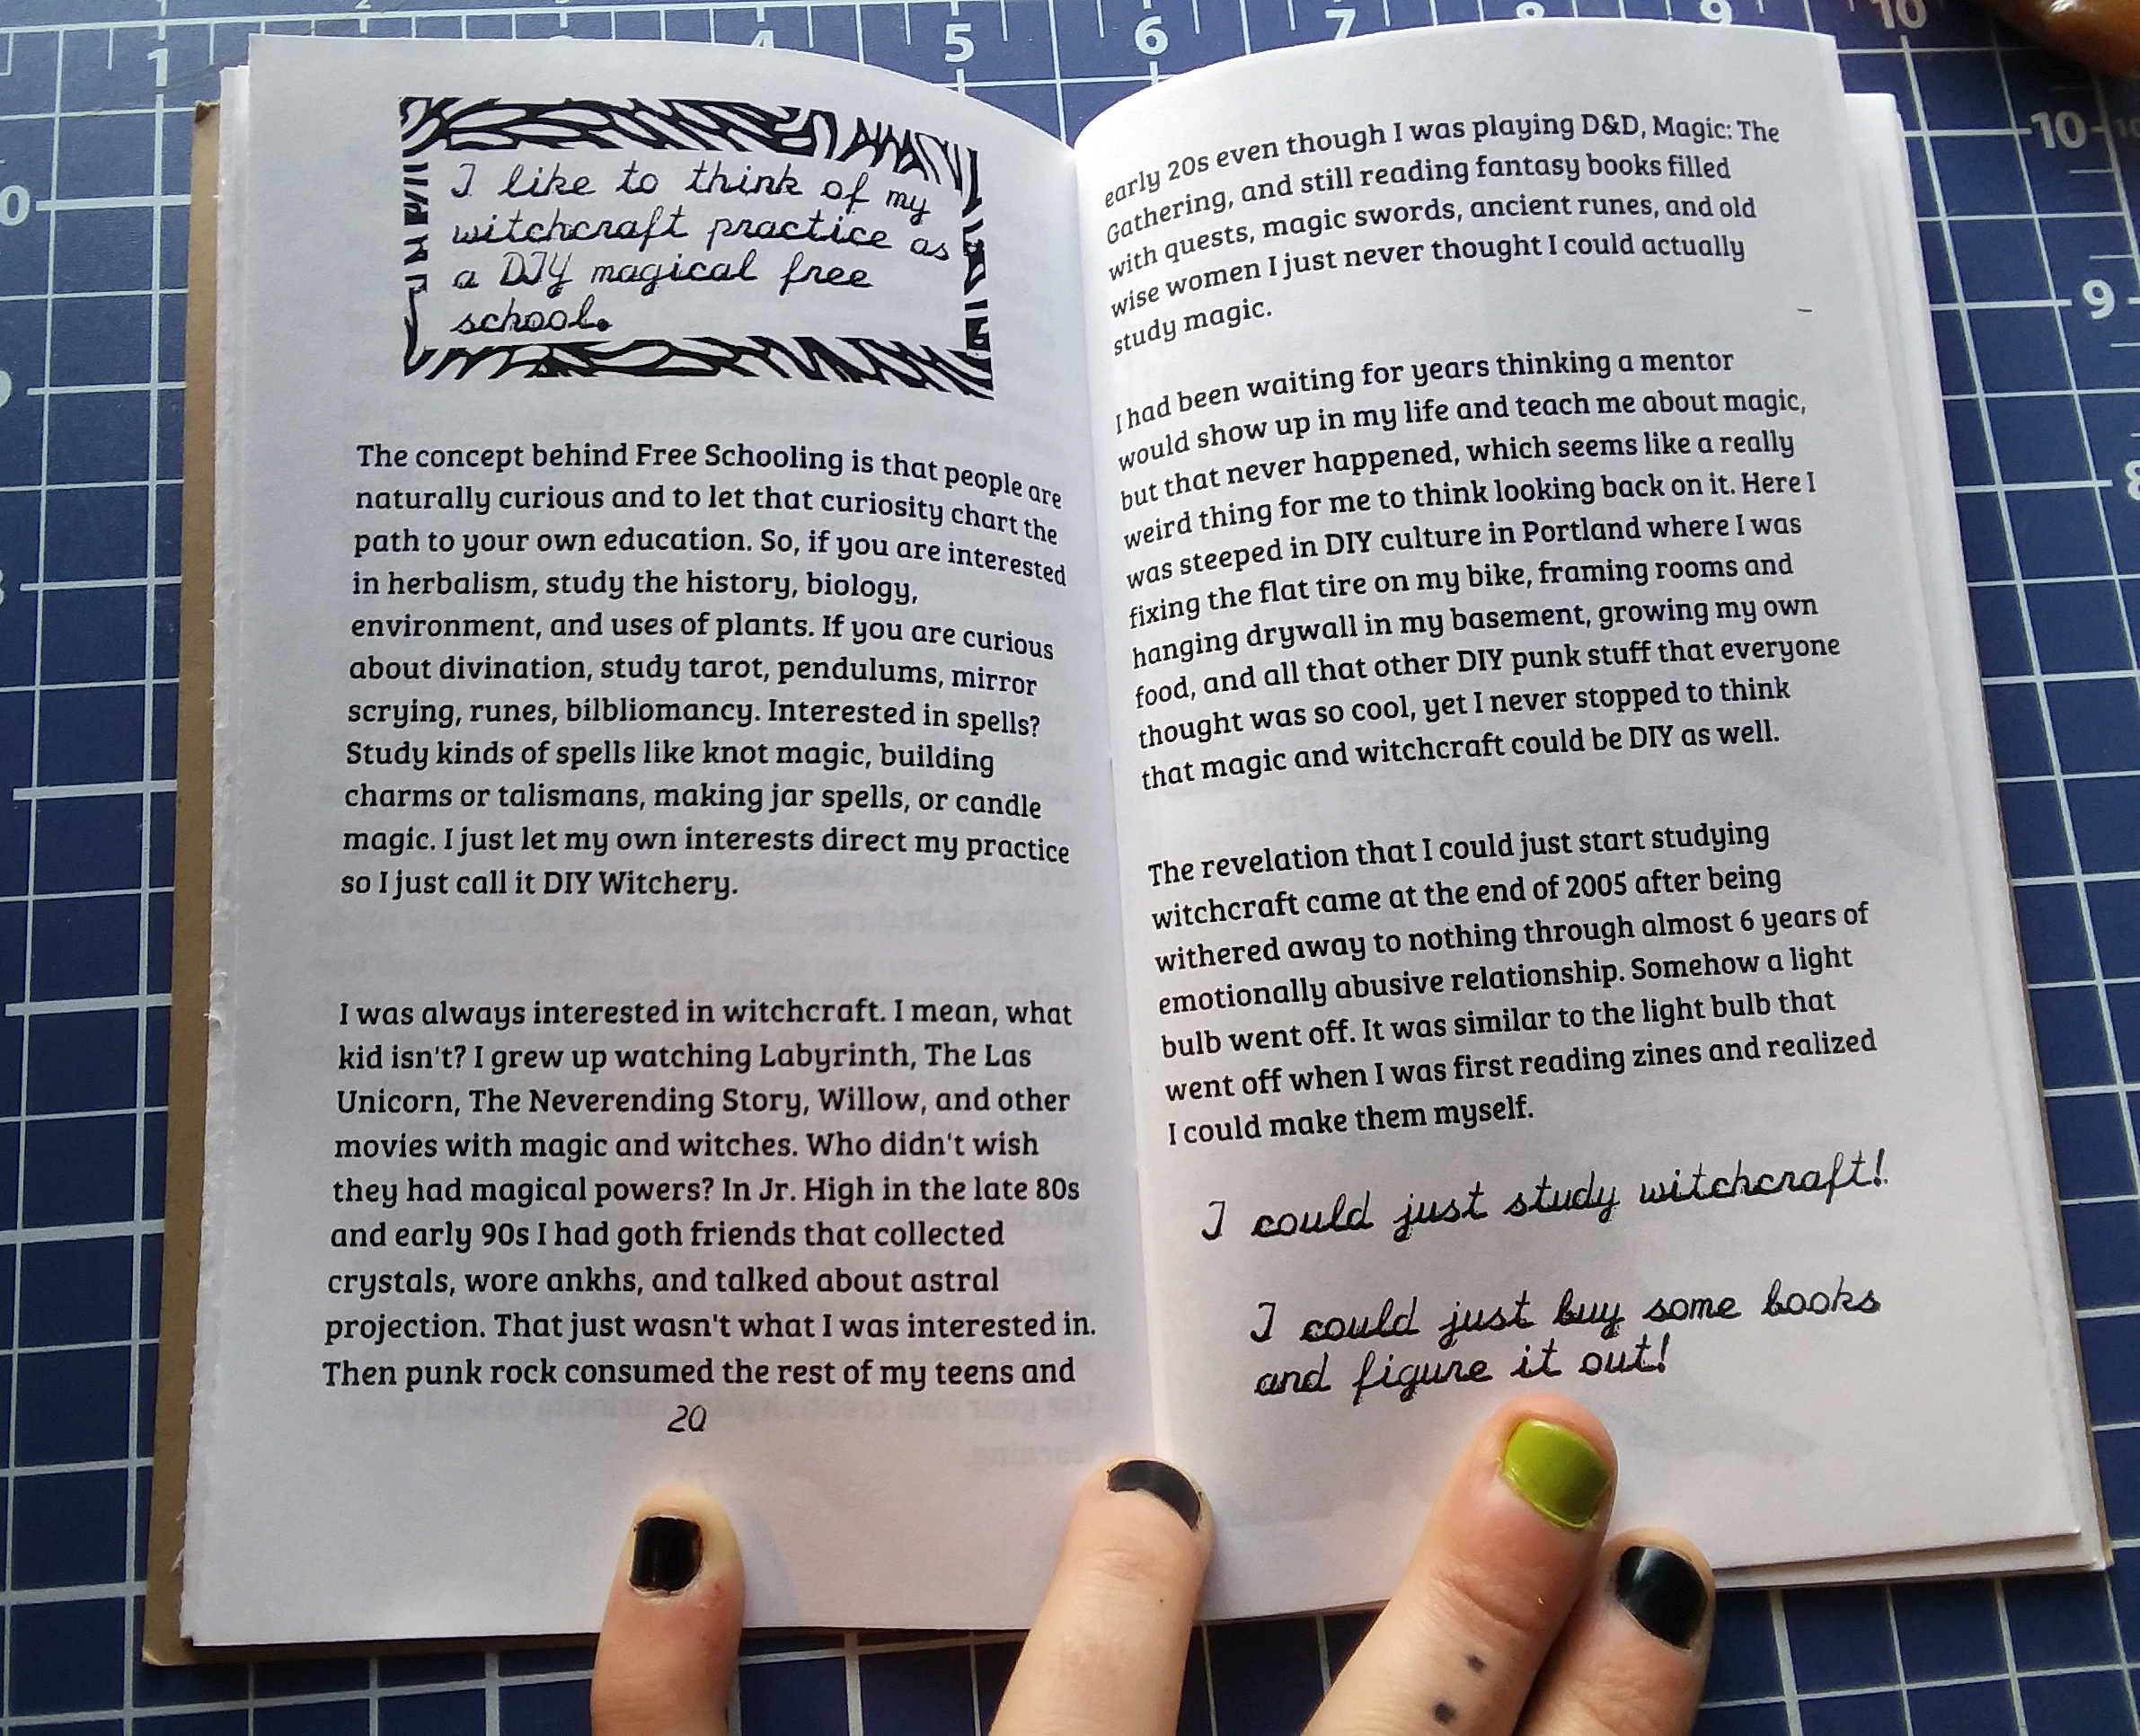 I like to think of my
witchcraft practice as
a DIY magical free
school.
The concept behind Free Schooling is that people are
naturally curious and to let that curiosity chart the
path to your own education. So, if you are interested
in herbalism, study the history, biology,
environment, and uses of plants. If you are curious
about divination, study tarot, pendulums, mirror
scrying, runes, bilbliomancy. Interested in spells?
Study kinds of spells like knot magic, building
charms or talismans, making jar spells, or candle
magic. I just let my own interests direct my practice
so I just call it DIY Witchery.
I was always interested in witchcraft. I mean, what
kid isn't? I grew up watching Labyrinth, The Las
Unicorn, The Neverending Story, Willow, and other
movies with magic and witches. Who didn't wish
they had magical powers? In Jr. High in the late 80s
and early 90s I had goth friends that collected
crystals, wore ankhs, and talked about astral
projection. That just wasn't what I was interested in.
Then punk rock consumed the rest of my teens and
20
early 20s even though I was playing D&D, Magic: The
Gathering, and still reading fantasy books filled
with quests, magic swords, ancient runes, and old
wise women I just never thought I could actually
study magic.
I had been waiting for years thinking a mentor
would show up in my life and teach me about magic,
but that never happened, which seems like a really
weird thing for me to think looking back on it. Here I
was steeped in DIY culture in Portland where I was
fixing the flat tire on my bike, framing rooms and
hanging drywall in my basement, growing my own
food, and all that other DIY punk stuff that everyone
thought was so cool, yet I never stopped to think
that magic and witchcraft could be DIY as well.
The revelation that I could just start studying
witchcraft came at the end of 2005 after being
withered away to nothing through almost 6 years of
emotionally abusive relationship. Somehow a light
bulb went off. It was similar to the light bulb that
went off when I was first reading zines and realized
I could make them myself.
I could just study witchcraft!
I could just buy some books
and figure it out!
1
5
6
7
8
9
10
10
9
8